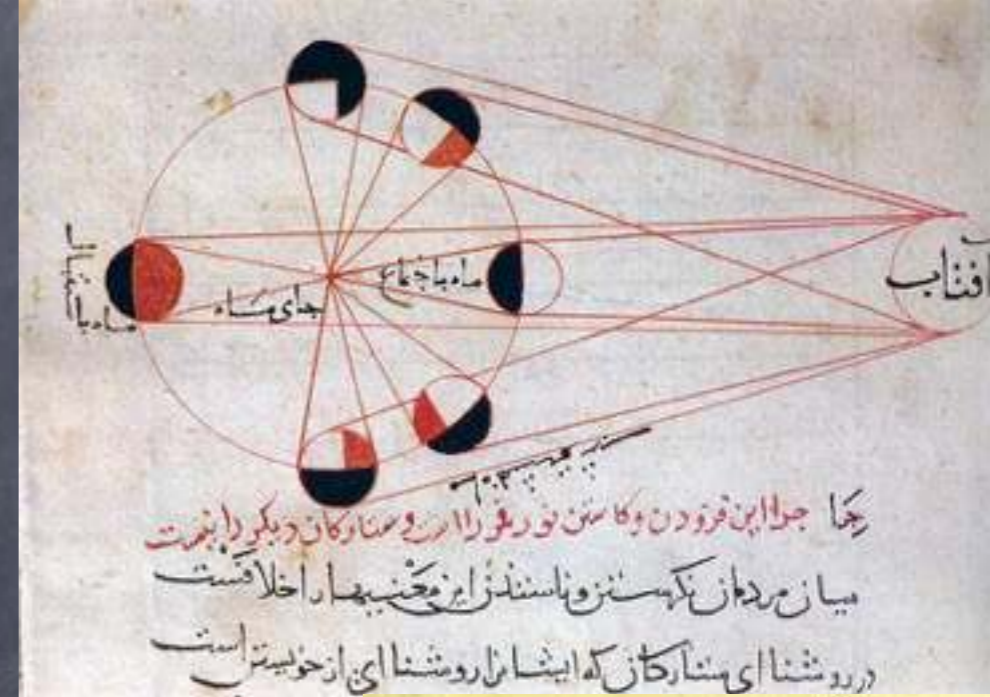 افتاب
ماه باجتماع
جای ماه
ماه باستقبال
چرا این فزودن و کاستن نور قمر را است و ستارکان دیکر را نیست
میان مردمان نکرستن و ناسندن این مَعْنیها را خلافست
در روشنا ای ستارکان که ایشانرا روشنا ای از خویشتن است